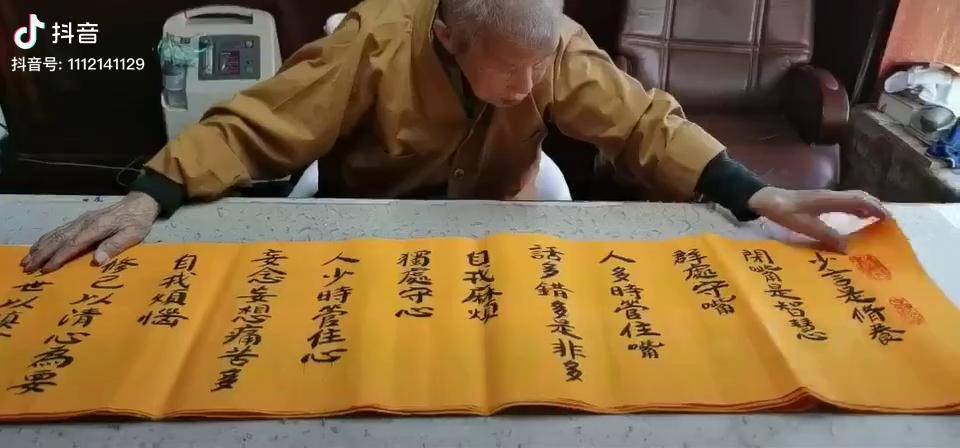 抖音
抖音号: 1112141129
少言是脩養
閉嘴是智慧
群處守嘴
人多時管住嘴
話多錯多是非多
自我麻煩
獨處守心
人少時管住心
妄念妄想痛苦多
自我煩惱
修己以清心為要
世以慎